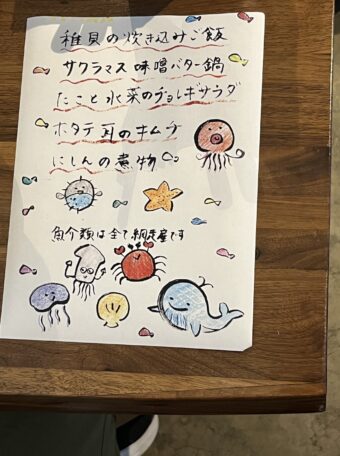 稚貝の炊き込みご飯
サクラマス味噌バター鍋
たこと水菜のチョレギサラダ
ホタテ耳のキムチ
にしんの煮物
魚介類は全て網走産です